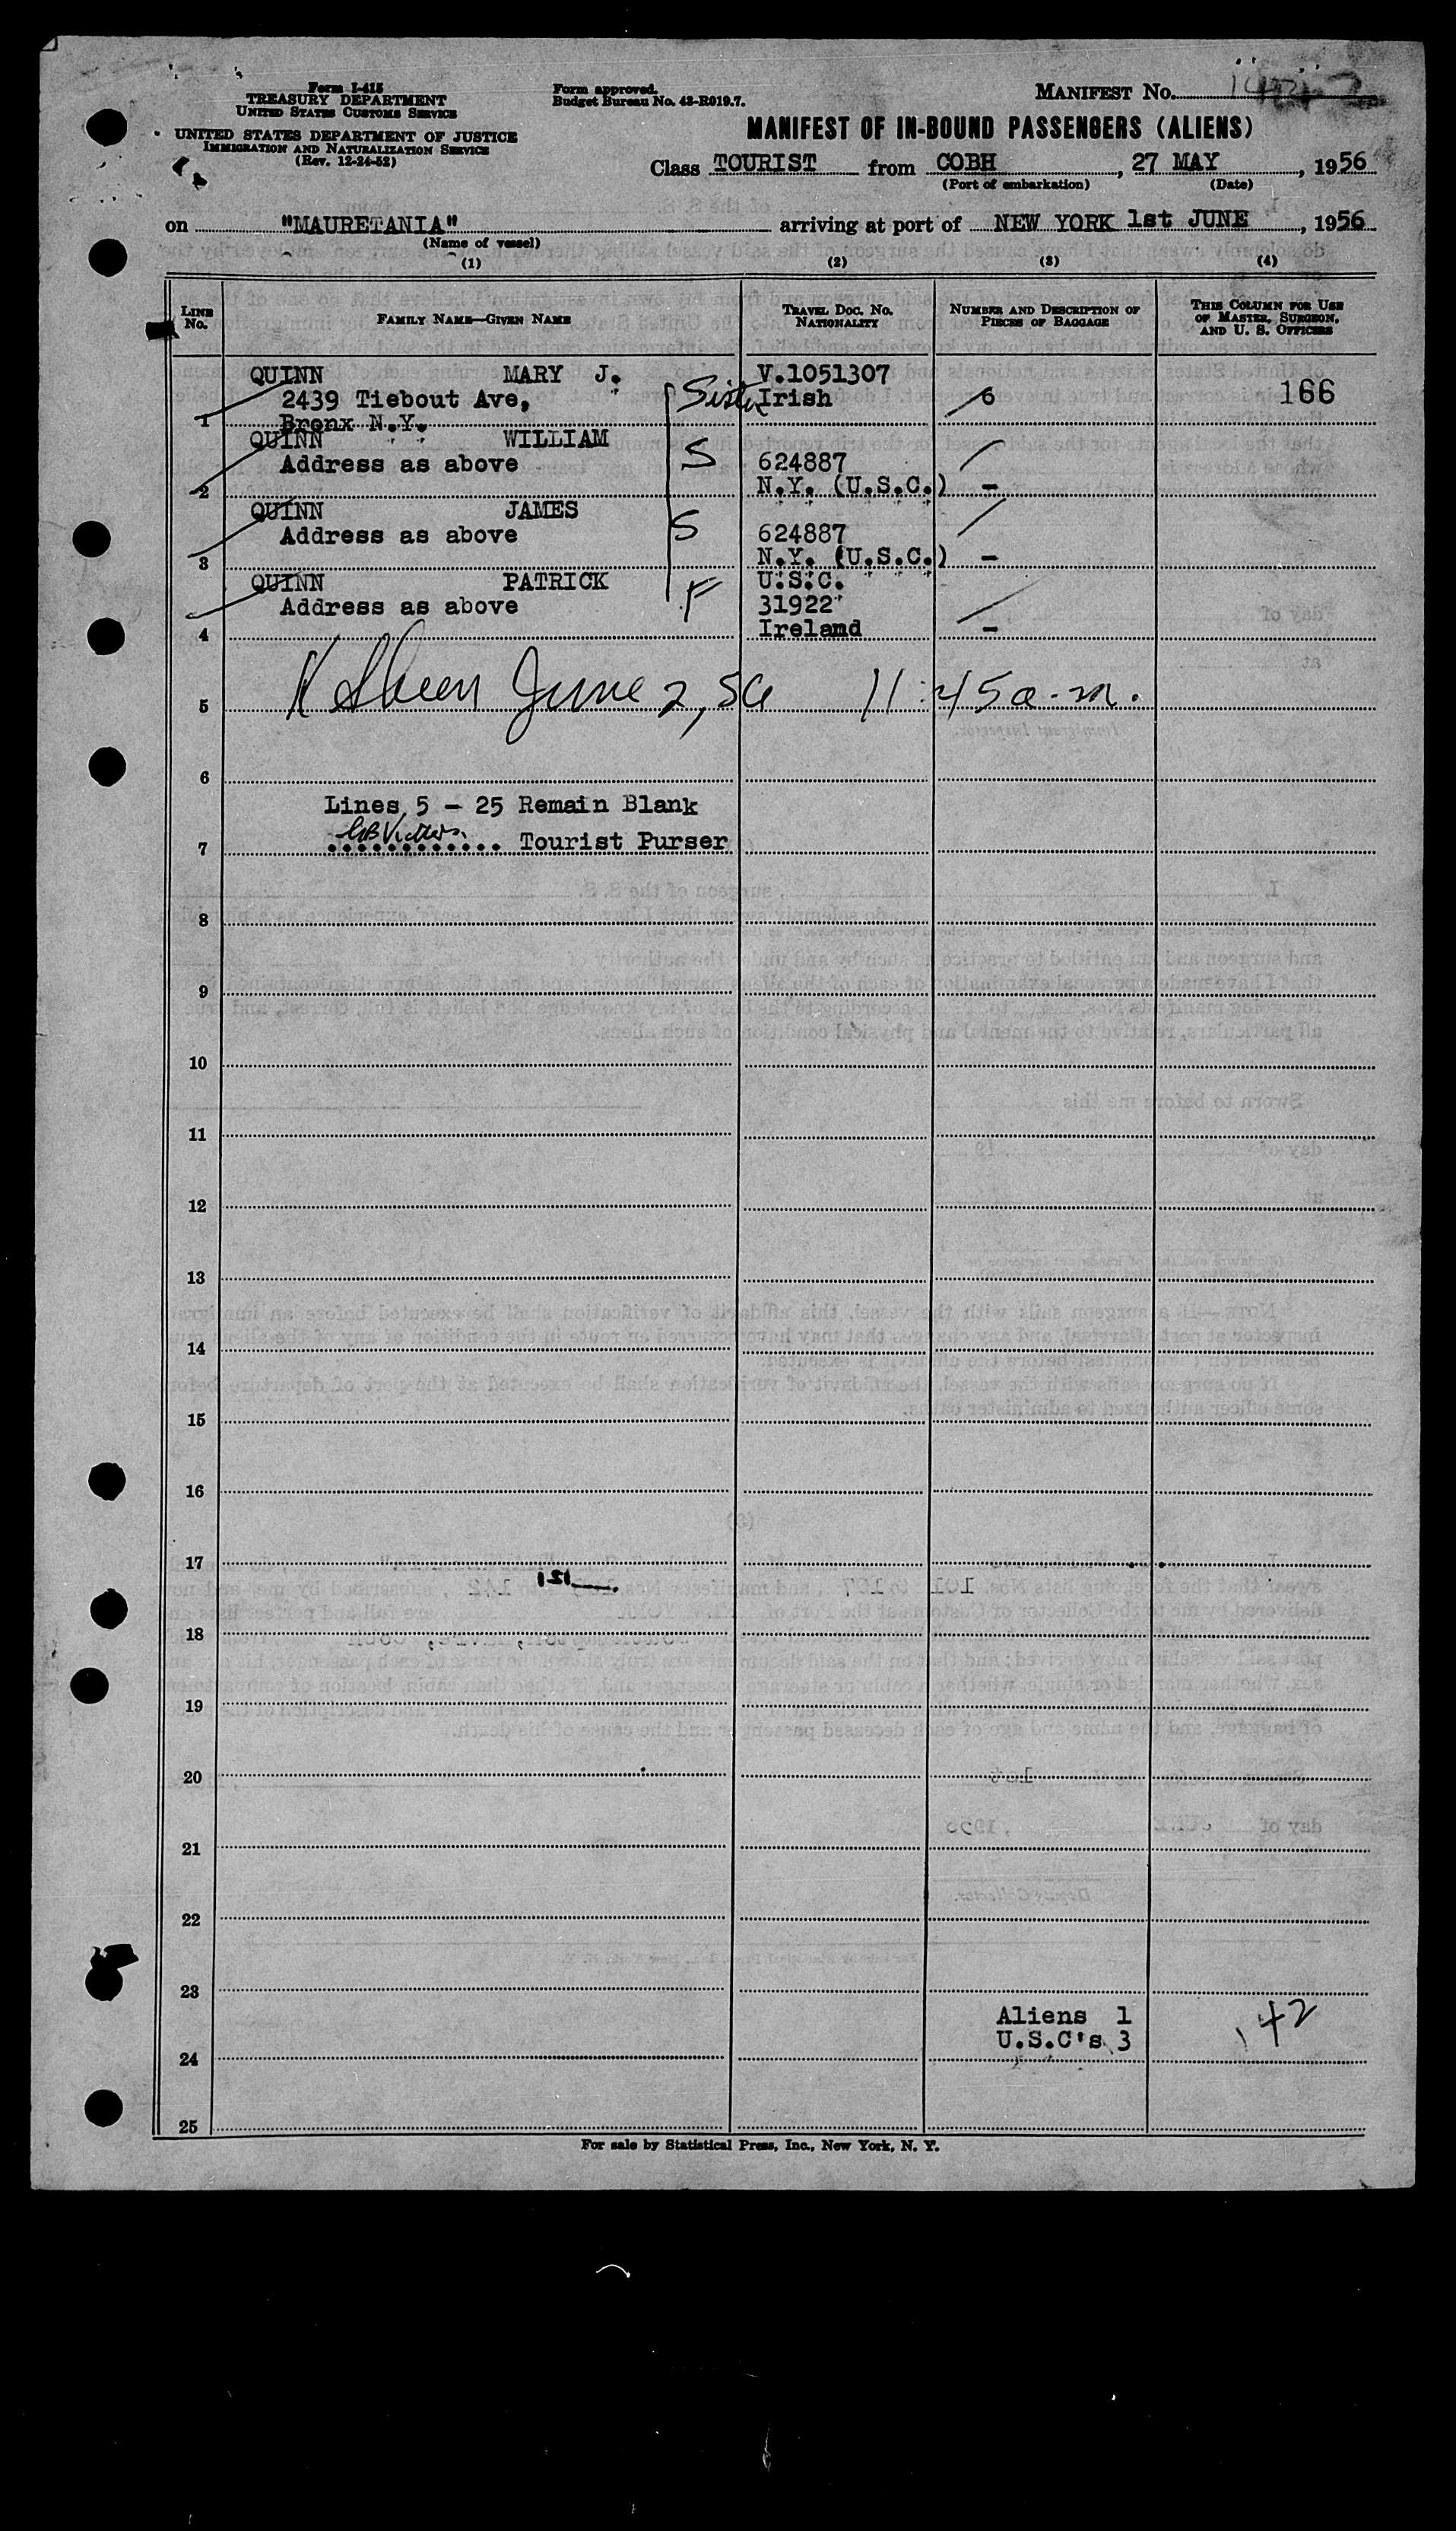 Form I-415
TREASURY DEPARTMENT
UNITED STATES CUSTOMS SERVICE
UNITED STATES DEPARTMENT OF JUSTICE
IMMIGRATION AND NATURALIZATION SERVICE
(Rev. 12-24-52)
Form approved.
Budget Bureau No. 43-R019.7.
MANIFEST NO.
MANIFEST OF IN-BOUND PASSENGERS (ALIENS)
Class TOURIST from COBH, 27 MAY, 1956
(Port of embarkation) (Date)
on "MAURETANIA" arriving at port of NEW YORK 1st JUNE, 1956
(Name of vessel)
(1) (2) (3) (4)
LINE NO.
FAMILY NAME—GIVEN NAME
TRAVEL DOC. NO. NATIONALITY
NUMBER AND DESCRIPTION OF PIECES OF BAGGAGE
THIS COLUMN FOR USE OF MASTER, SURGEON, AND U. S. OFFICERS
QUINN MARY J. V.1051307
2439 Tiebout Ave, Sister Irish 6 166
1 Bronx N.Y.
QUINN WILLIAM
Address as above S 624887
2 N.Y. (U.S.C.) -
QUINN JAMES
Address as above S 624887
3 N.Y. (U.S.C.) -
QUINN PATRICK U.S.C.
Address as above F 31922
4 Ireland -
5 June 2, 56 11:45 a.m.
6
Lines 5 - 25 Remain Blank
7 Tourist Purser
8
9
10
11
12
13
14
15
16
17
18
19
20
21
22
23
Aliens 1
U.S.C's 3 142
24
25
For sale by Statistical Press, Inc., New York, N. Y.